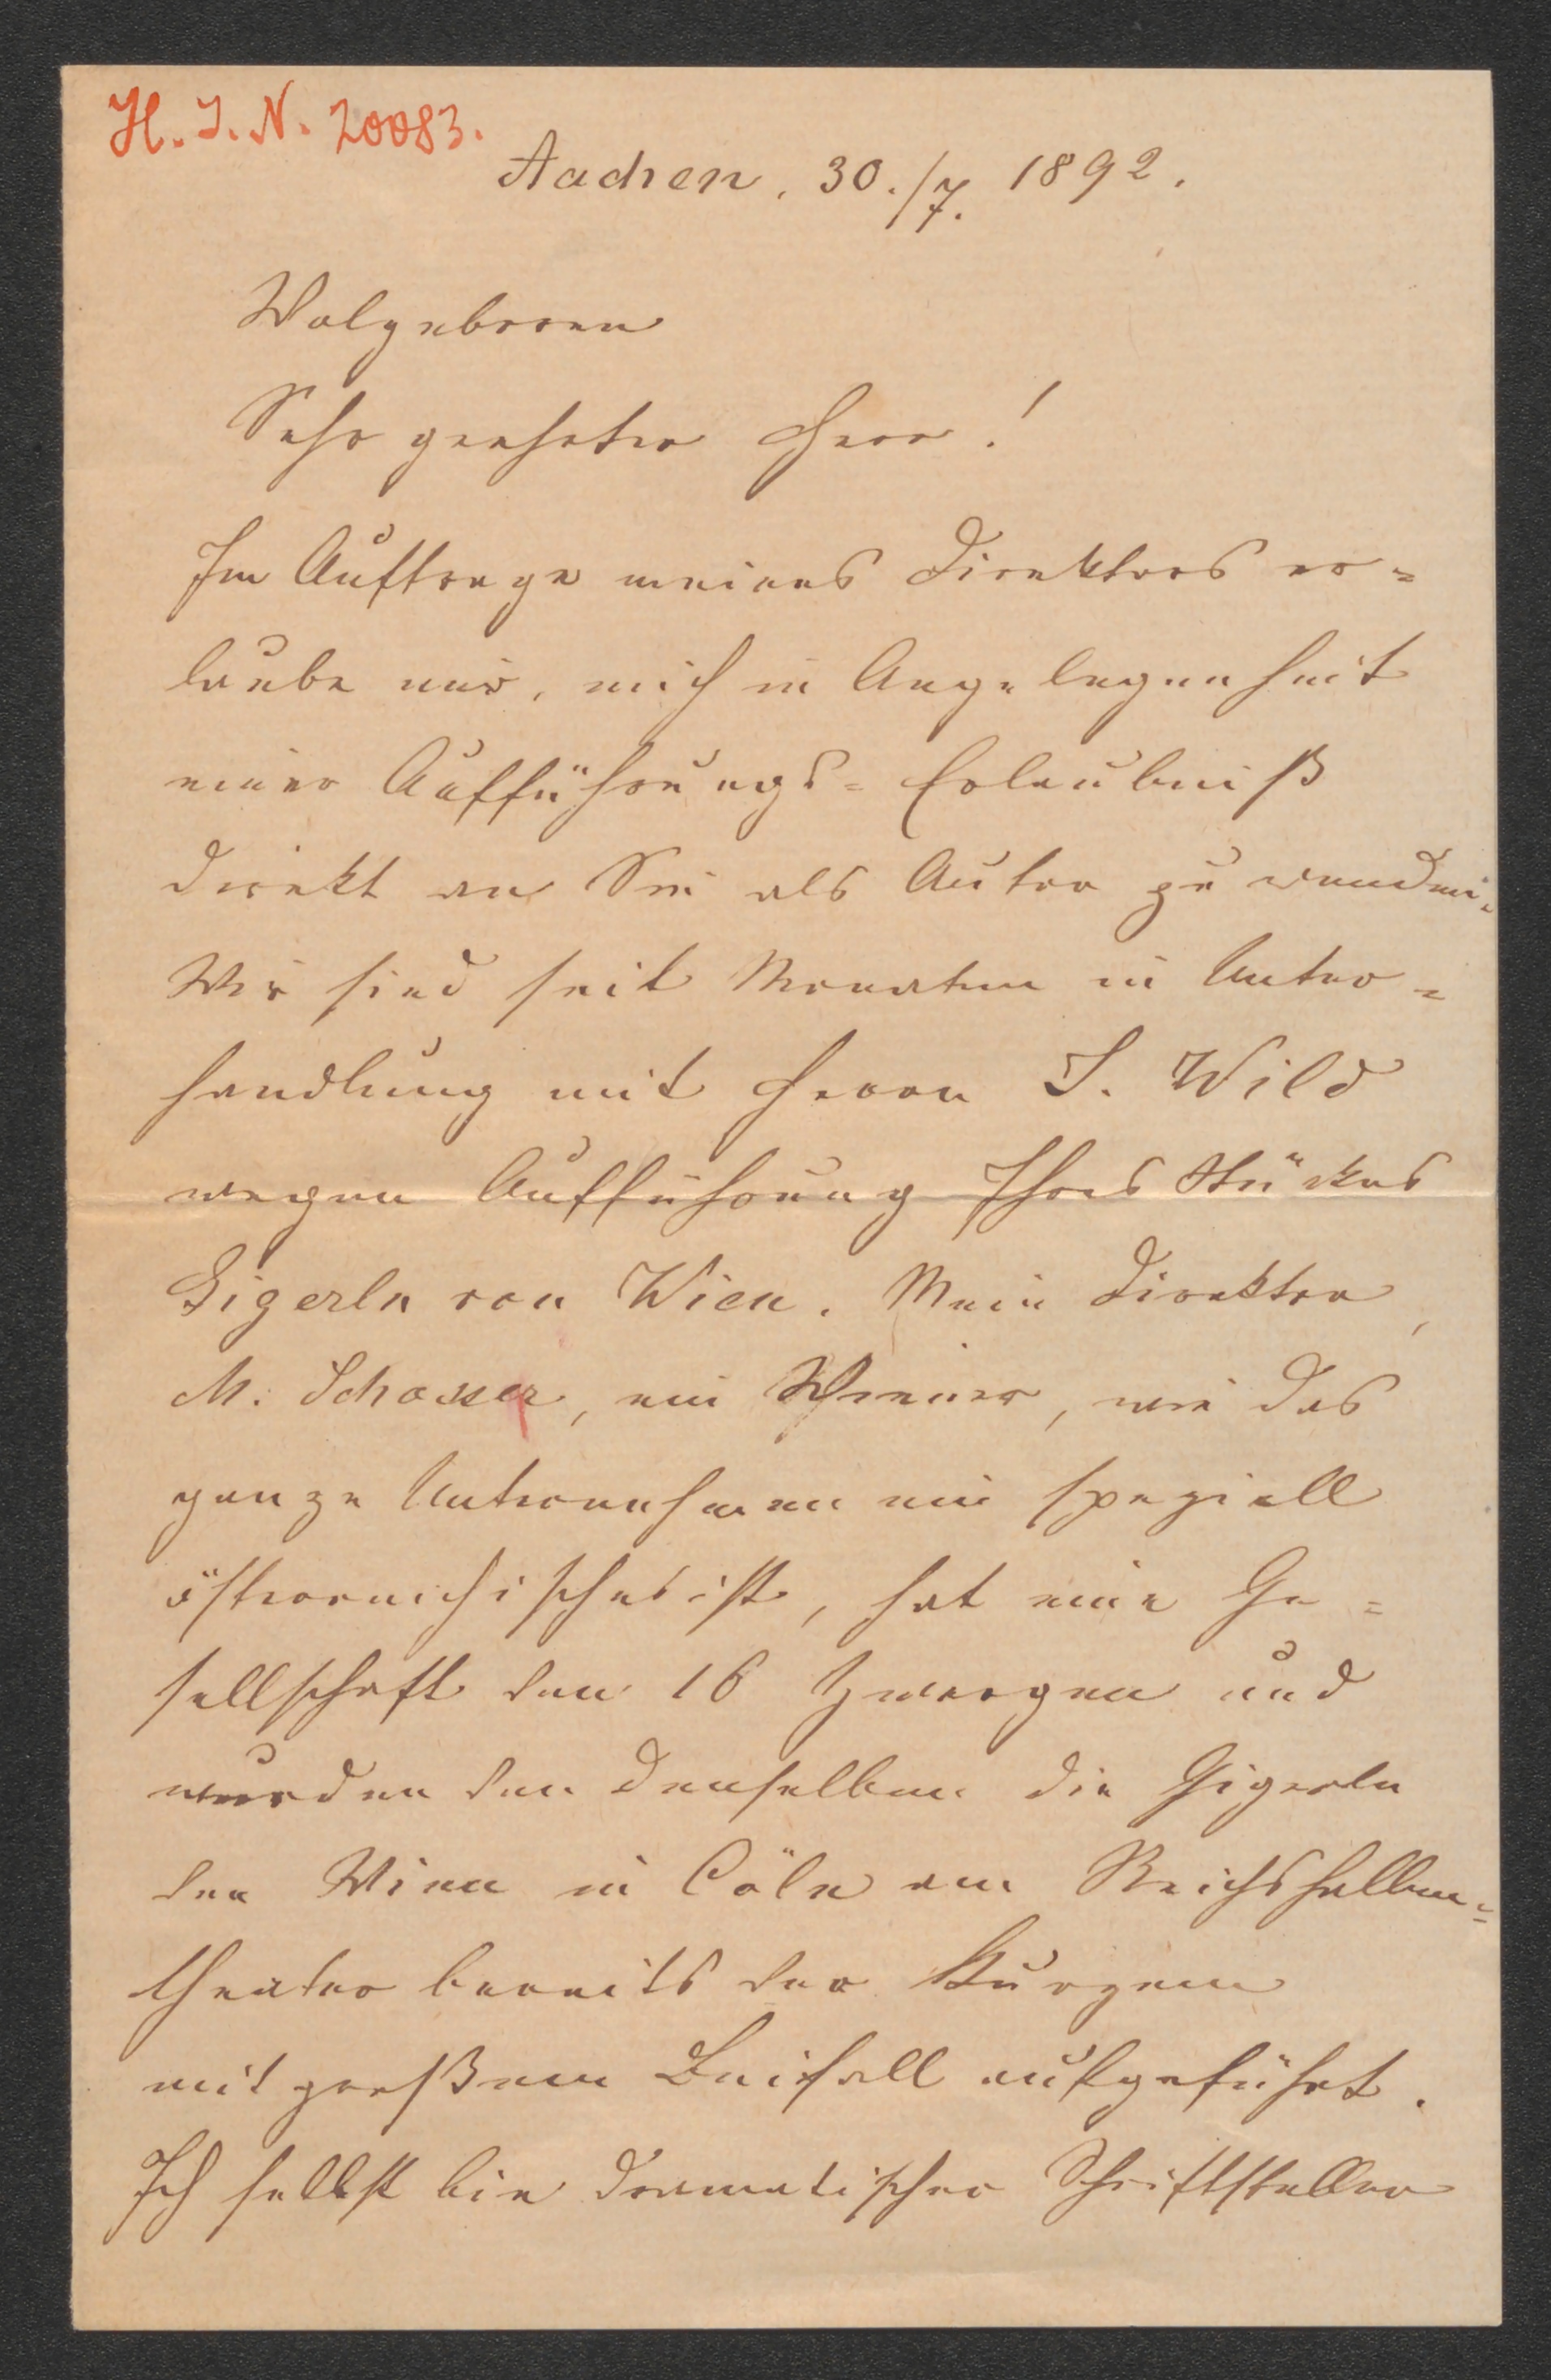 H. I. N. 20083.
Aachen, 30./7. 1892.
Wolgeboren
Sehr geehrter Herr!
Im Auftrage meines Direktors er=
laube mir, mich in Angelegenheit
einer Aufführungs=Erlaubniß
direkt an Sie als Autor zu wenden.
Wir sind seit Monaten in Unter=
handlung mit Herrn J. Wild
wegen Aufführung Ihres Stückes
Gigerln von Wien. Mein Direktor,
M. Schasser, ein Wiener, wie das
ganze Unternehmen ein speziell
österreichisches ist, hat eine Ge=
sellschaft von 16 Zwergen und
wurden von denselben die Gigerln
von Wien in Cöln am Reichshallen=
theater bereits vor Kurzem
mit großem Beifall aufgeführt.
Ich selbst bin dramatischer Schriftsteller